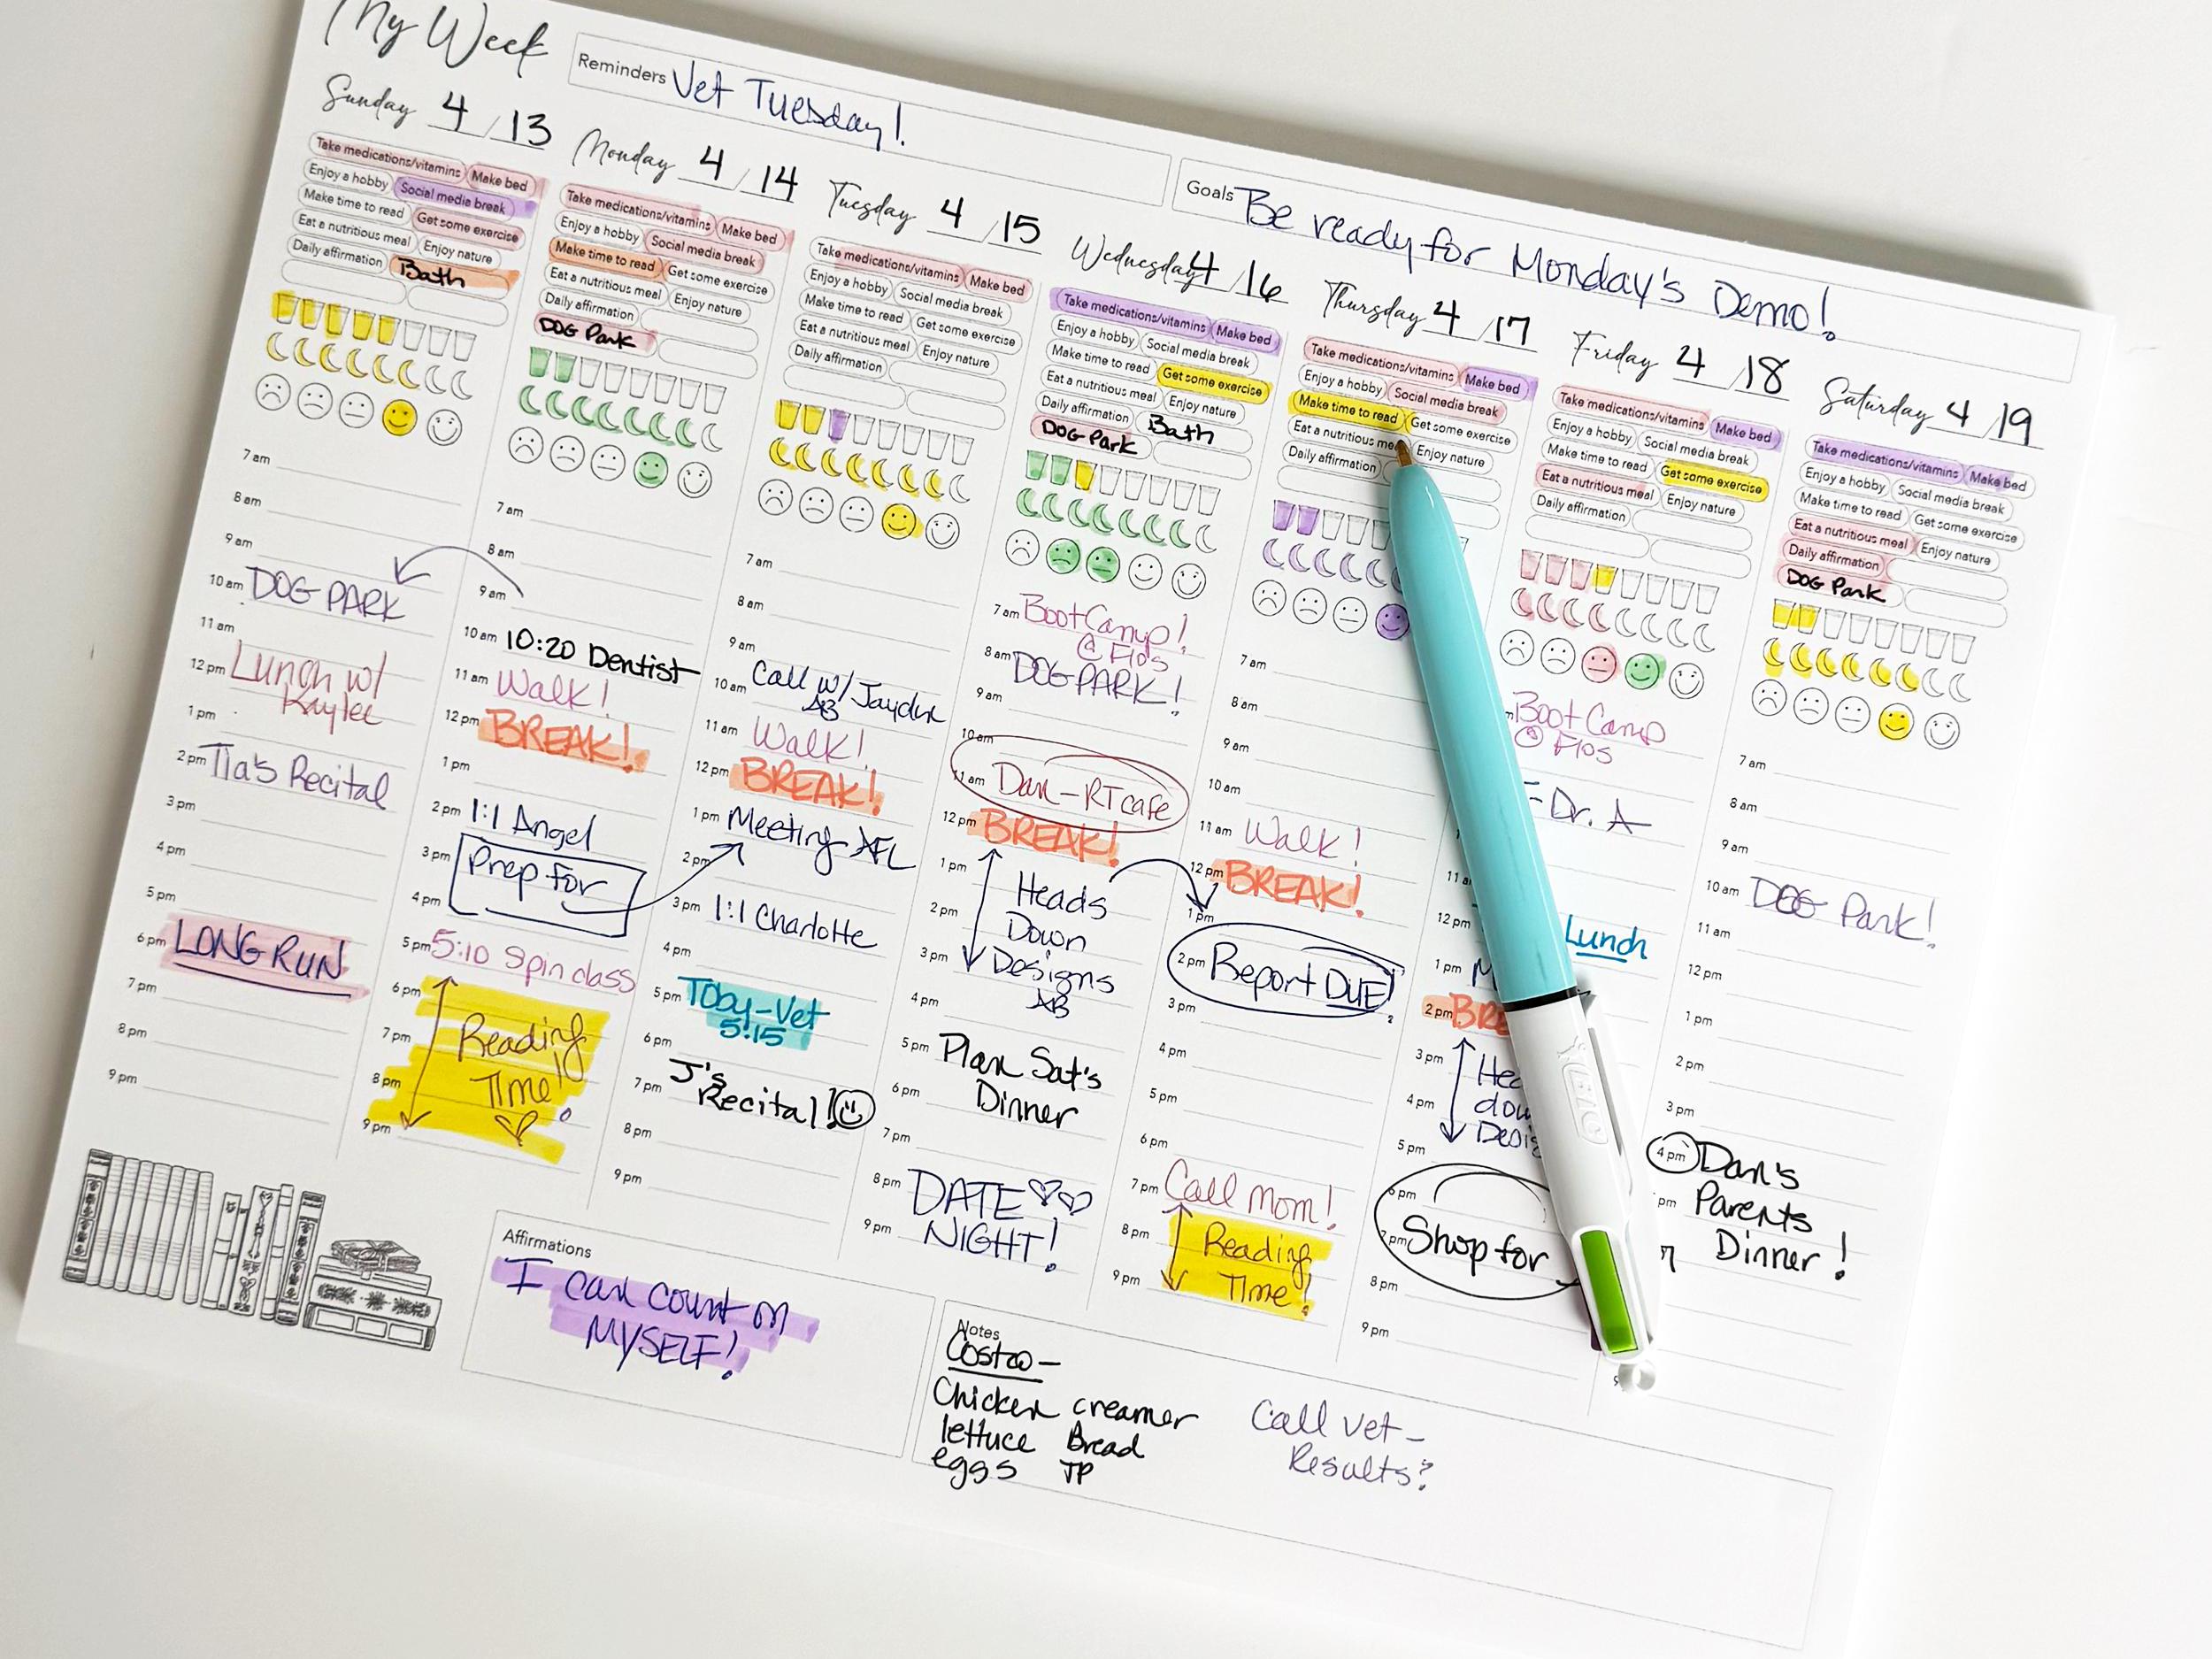 My Week
Reminders Vet Tuesday!
Goals Be ready for Monday's Demo!
Sunday 4/13
Take medications/vitamins Make bed
Enjoy a hobby Social media break
Make time to read Get some exercise
Eat a nutritious meal Enjoy nature
Daily affirmation Bath
7 am
8 am
9 am
10 am DOG PARK
11 am
12 pm Lunch w/
Kaylee
1 pm
2 pm Tia's Recital
3 pm
4 pm
5 pm
6 pm LONG RUN
7 pm
8 pm
9 pm
Monday 4/14
Take medications/vitamins Make bed
Enjoy a hobby Social media break
Make time to read Get some exercise
Eat a nutritious meal Enjoy nature
Daily affirmation
DOG Park
7 am
8 am
9 am
10 am 10:20 Dentist
11 am Walk!
12 pm BREAK!
1 pm
2 pm 1:1 Angel
3 pm Prep for
4 pm
5 pm 5:10 Spin class
6 pm
7 pm Reading
8 pm Time!
9 pm
Tuesday 4/15
Take medications/vitamins Make bed
Enjoy a hobby Social media break
Make time to read Get some exercise
Eat a nutritious meal Enjoy nature
Daily affirmation
7 am
8 am
9 am
10 am Call w/ Jayden
AB
11 am Walk!
12 pm BREAK!
1 pm Meeting AFL
2 pm
3 pm 1:1 Charlotte
4 pm
5 pm Toby-Vet
5:15
6 pm
7 pm J's
Recital!
8 pm
9 pm
Wednesday 4/16
Take medications/vitamins Make bed
Enjoy a hobby Social media break
Make time to read Get some exercise
Eat a nutritious meal Enjoy nature
Daily affirmation Bath
DOG Park
7 am Boot Camp!
@ Flo's
8 am DOG PARK!
9 am
10 am
11 am Dan - RT cafe
12 pm BREAK!
1 pm Heads
2 pm Down
3 pm Designs
AB
4 pm
5 pm Plan Sat's
6 pm Dinner
7 pm
8 pm DATE
9 pm NIGHT!
Thursday 4/17
Take medications/vitamins Make bed
Enjoy a hobby Social media break
Make time to read Get some exercise
Eat a nutritious me Enjoy nature
Daily affirmation
7 am
8 am
9 am
10 am
11 am Walk!
12 pm BREAK!
1 pm
2 pm Report DUE!
3 pm
4 pm
5 pm
6 pm
7 pm Call Mom!
8 pm Reading
9 pm Time!
Friday 4/18
Take medications/vitamins Make bed
Enjoy a hobby Social media break
Make time to read Get some exercise
Eat a nutritious meal Enjoy nature
Daily affirmation
Boot Camp
@ Flo's
Dr. A
12 pm Lunch
1 pm
2 pm BRE
3 pm
4 pm
5 pm
6 pm
7 pm Shop for
8 pm
9 pm
Saturday 4/19
Take medications/vitamins Make bed
Enjoy a hobby Social media break
Make time to read Get some exercise
Eat a nutritious meal Enjoy nature
Daily affirmation
DOG Park
7 am
8 am
9 am
10 am DOG Park!
11 am
12 pm
1 pm
2 pm
3 pm
4 pm Dan's
pm Parents
Dinner!
Affirmations
I can count on
MYSELF!
Notes
Costco -
Chicken creamer
lettuce Bread
eggs TP
Call vet -
Results?